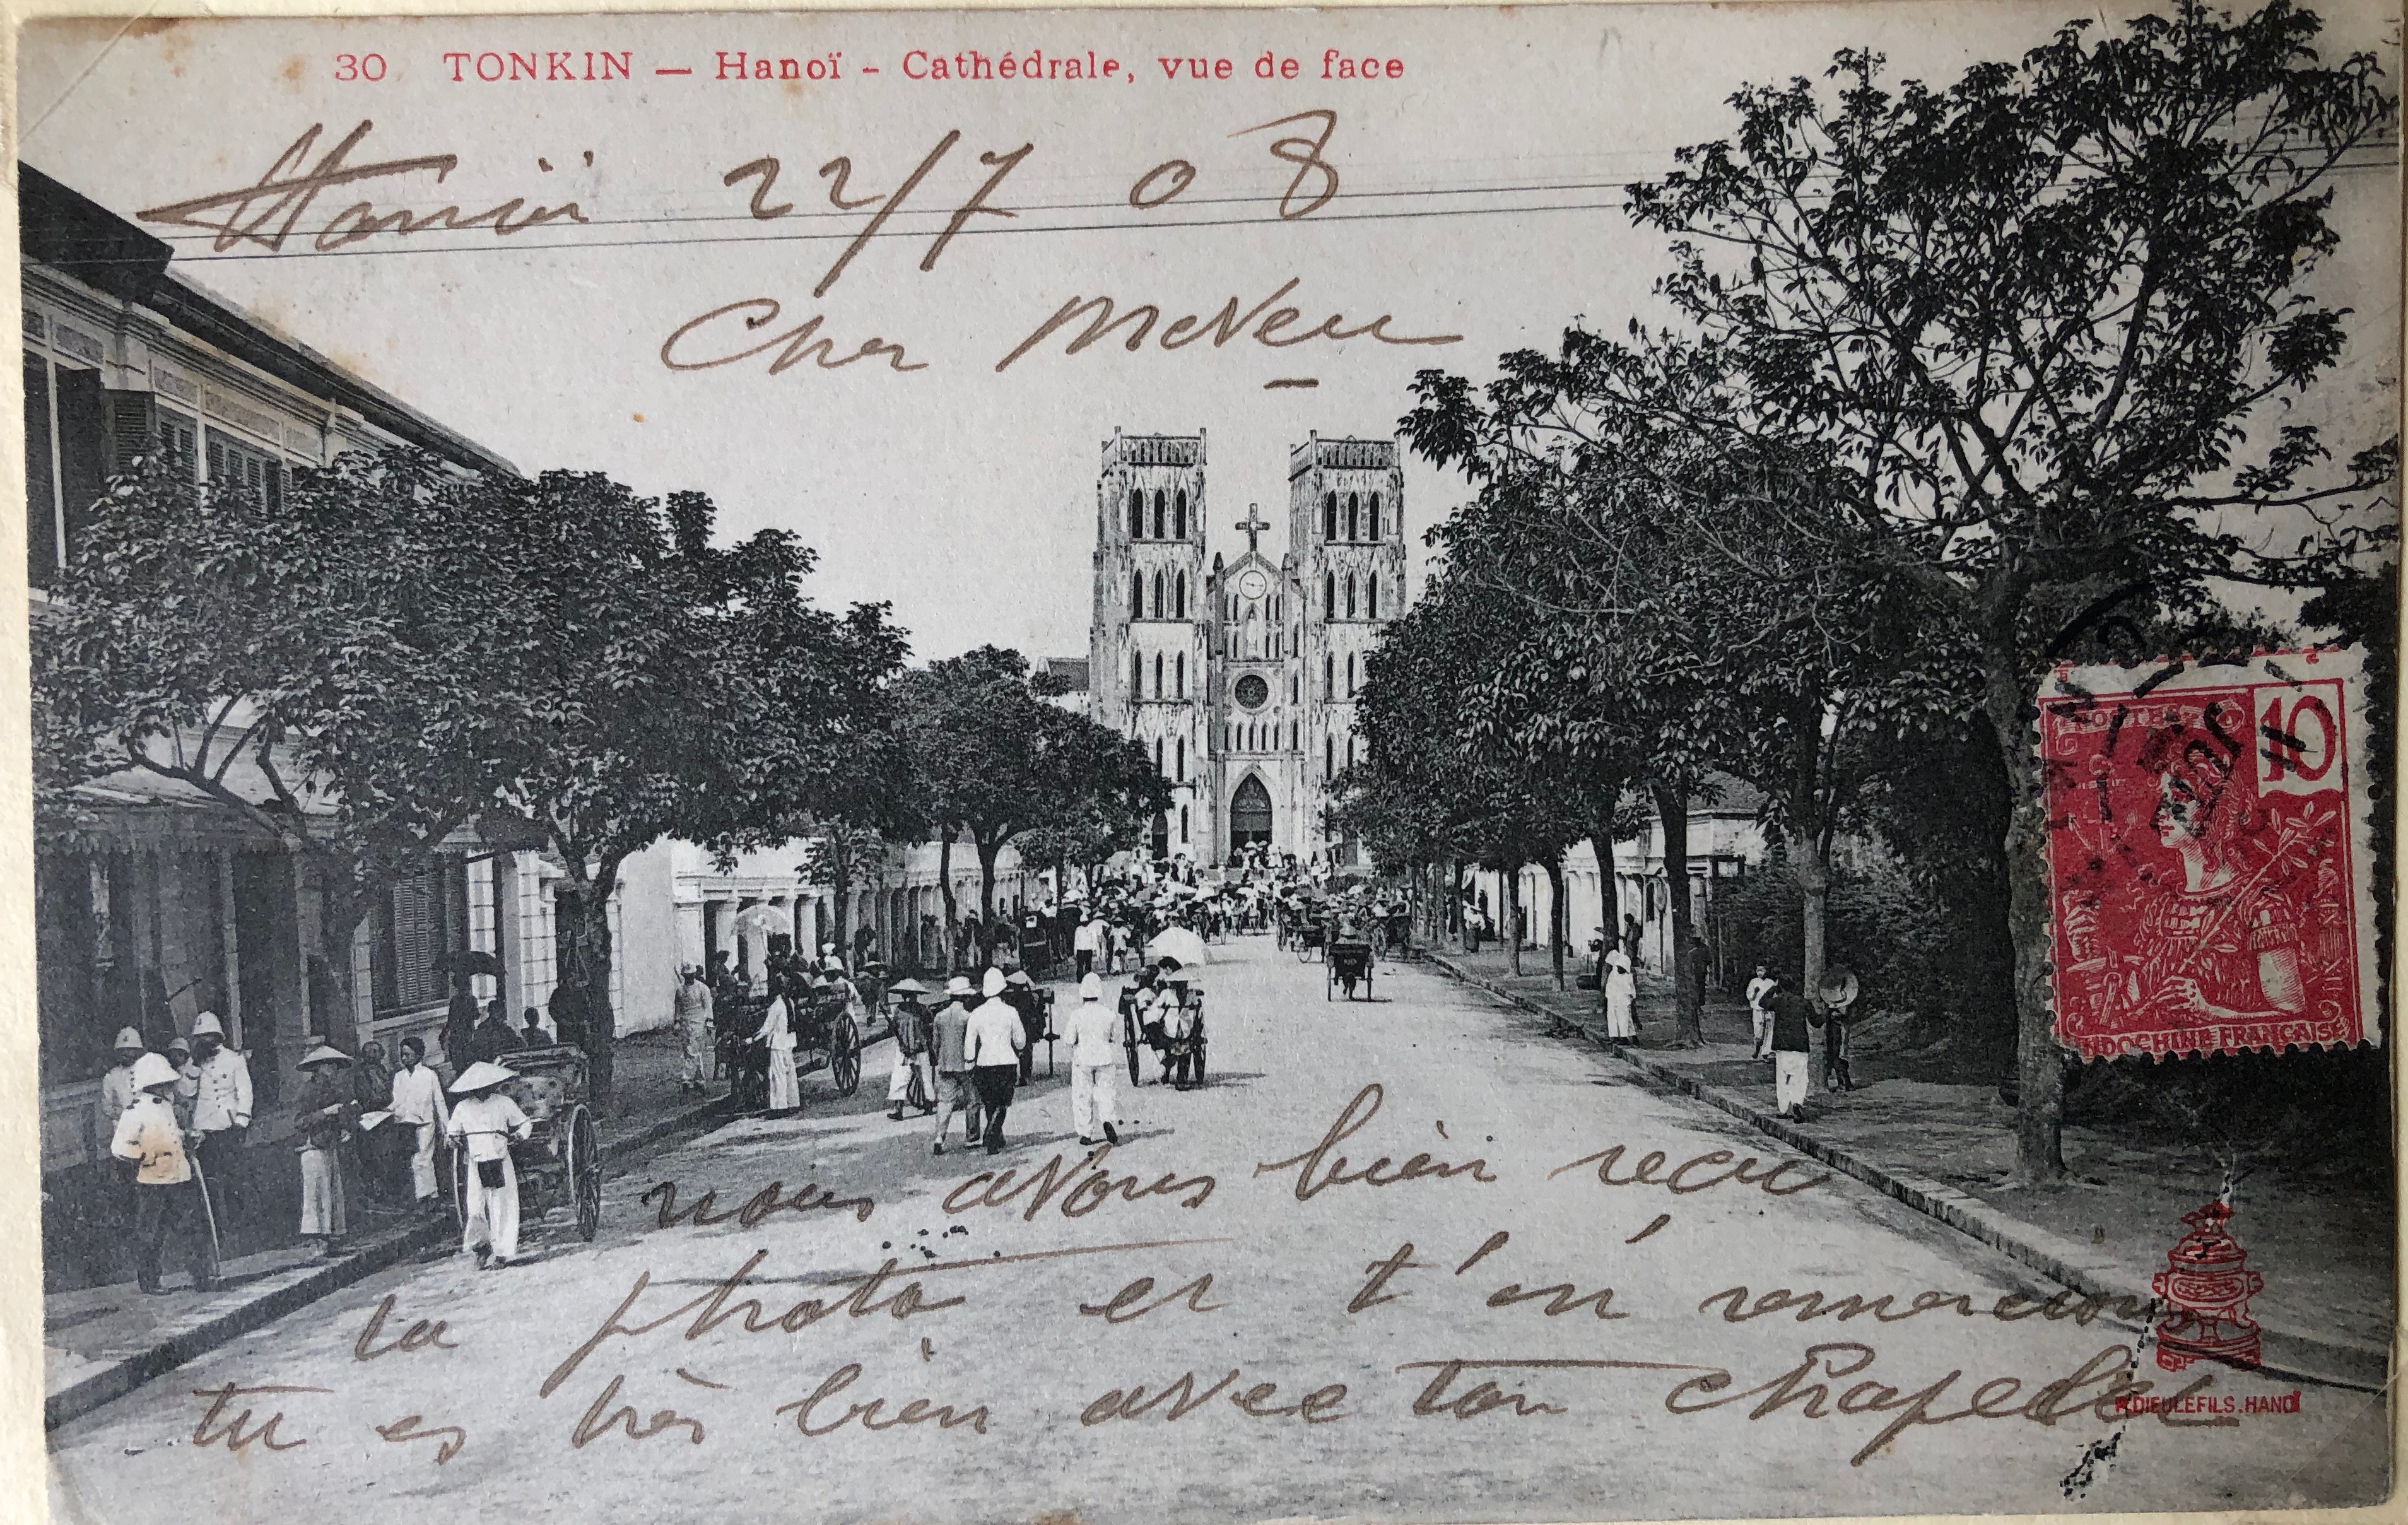 30 TONKIN — Hanoï - Cathédrale, vue de face
Hanoï 22/7 08
Cher Neveu
10
INDOCHINE FRANÇAISE
nous avons bien reçu
ta photo et t'en remercions
tu es très bien avec ton
P. DIEULEFILS. HANOI